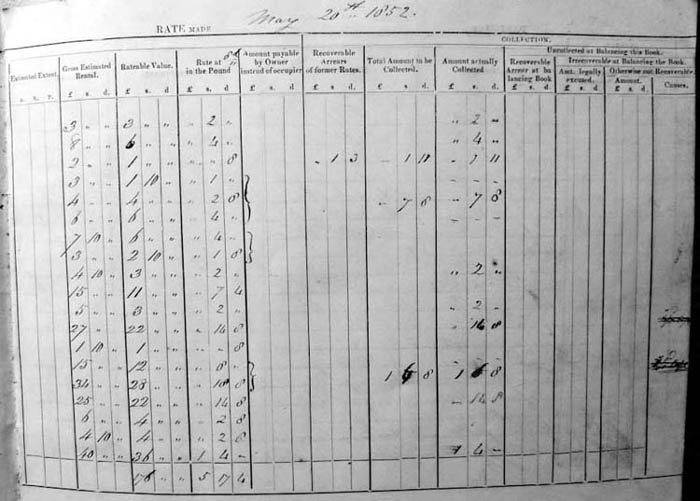 RATE MADE May 20th. 1852.
COLLECTION.
Uncollected at Balancing this Book.
Irrecoverable at Balancing the Book.
Estimated Extent. Gross Estimated Rental. Rateable Value. Rate at in the Pound Amount payable by Owner instead of occupier Recoverable Arrears of former Rates. Total Amount to be Collected. Amount actually Collected Recoverable Arrear at ba lancing Book Amt. legally excused. Otherwise not Recoverable. Amount. Causes.
a. r. p. £ s. d. £ s. d £ s. d £ s. d £ s. d £ s. d £ s. d £ s. d £ s. d £ s. d
3 " " 3 " " " 2 " " 2 "
8 " " 6 " " " 4 " " 4 "
2 " " 1 " " " " 8 - 1 3 - 1 11 - 1 11
3 " " 1 10 " " 1 " - - -
4 - " 4 " " " 2 8 - 7 8 - 7 8
6 " " 6 " " " 4 " - - -
7 10 " 6 " " " 4 "
3 " " 2 10 " " 1 8
4 10 " 3 " " " 2 " " 2 "
15 " " 11 " " " 7 4
5 " " 3 " " " 2 " " 2 "
27 " " 22 " " " 14 8 14 8
1 10 " 1 " " " " 8
15 " " 12 " " " 8 "
34 " " 28 " " " 18 8 1 6 8 1 6 8
25 " " 22 " " " 14 8 - 14 8
6 " " 4 " " " 2 8
4 10 " 4 " " " 2 8
40 " " 36 " " 1 4 - 1 4 -
176 " " 5 17 4